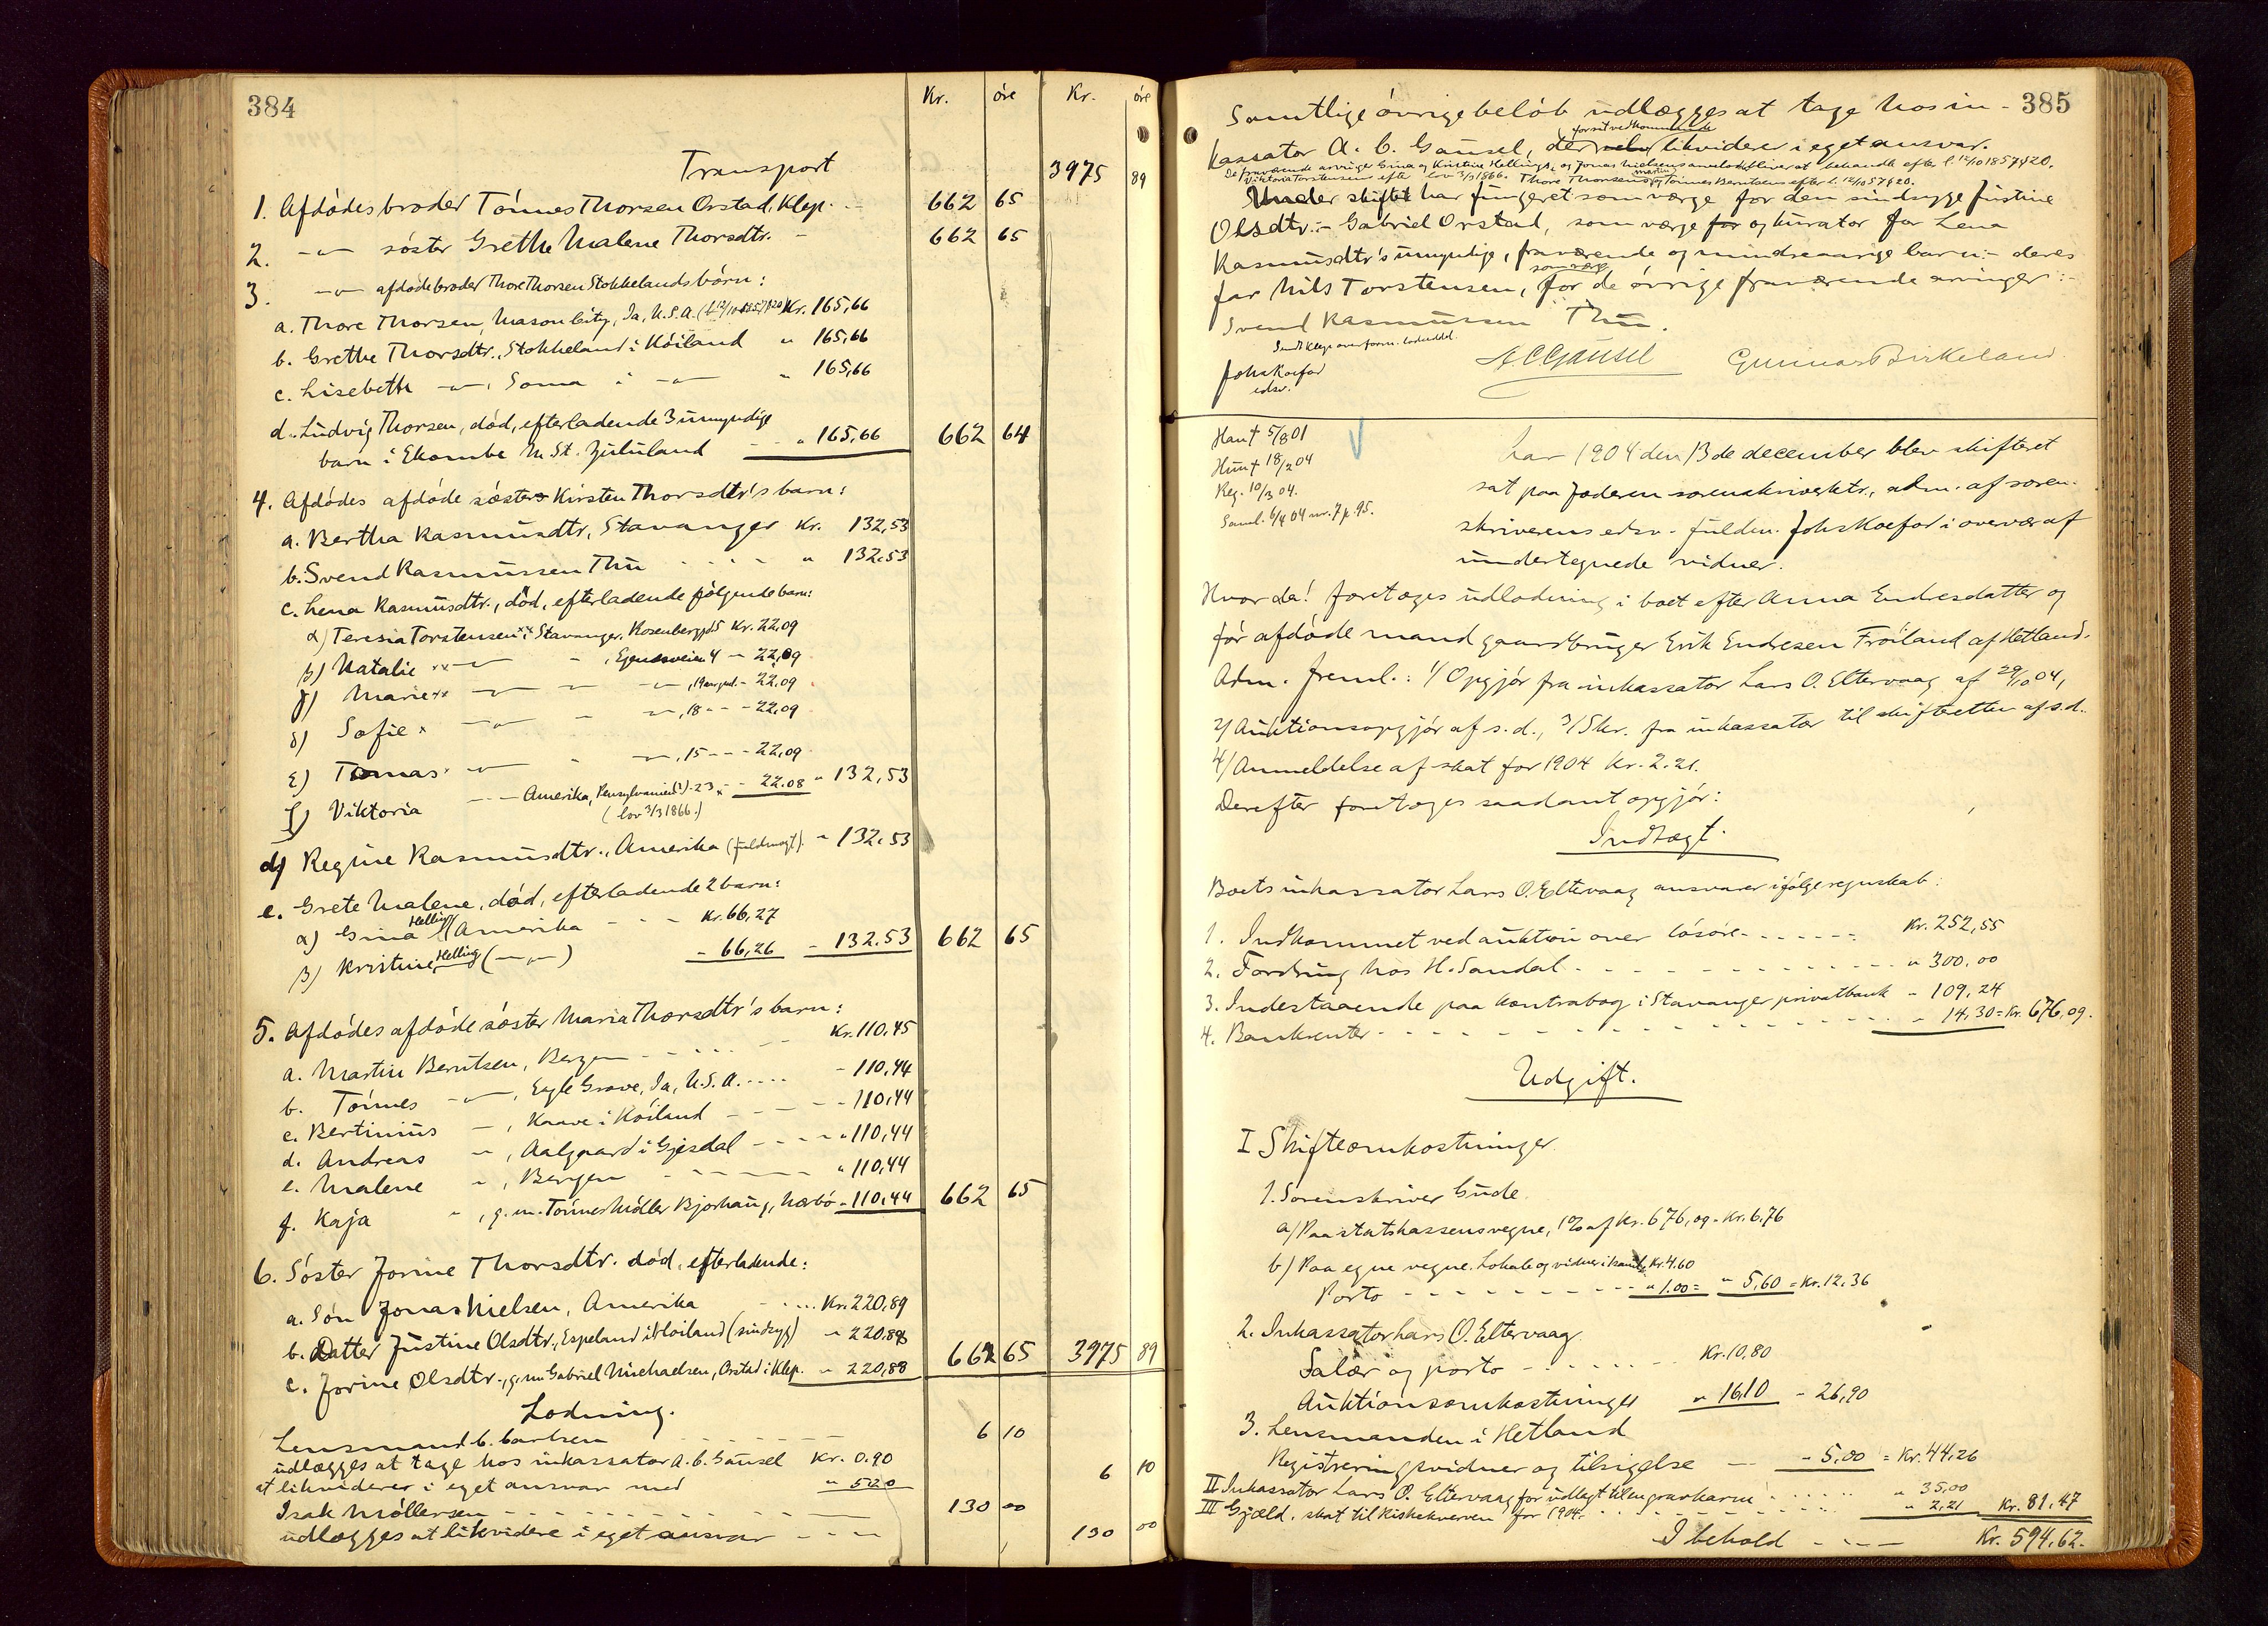 384
Kr. öre Kr. öre
Transport 3975 89
1. Afdödes broder Tönnes Thorsen Orstad, Klep. - 662 65
2. -"- söster Grethe Malene Thorsdtr. - 662 65
3. -"- afdöde broder Thore Thorsen Stokkelands börn:
a. Thore Thorsen, Mason City, Ia, U.S.A. (l. 12/10 1857 § 20) Kr. 165,66
b. Grethe Thorsdtr., Stokkeland i Höiland " 165,66
c. Lisebeth -"-, Soma i -"- " 165,66
d. Ludvig Thorsen, död, efterladende 3 umyndige
barn i Ekombe M. St. Zululand - - " 165,66 662 64
4. Afdödes afdöde söster Kirsten Thorsdtr's barn:
a. Bertha Rasmusdtr, Stavanger Kr. 132,53
b. Svend Rasmussen Thu - - - " 132,53
c. Lena Rasmusdtr., död, efterladende fölgende barn:
α) Teresia Torstensen xx i Stavanger, Rosenberggd 5 Kr. 22,09
β) Natalie xx -"- - , Egenesveien 4 - 22,09
γ) Marie xx -"- - -"-, 19 aar gml. - 22,09
δ) Sofie x -"- - -"-, 18 - - - 22,09
ε) Tomas x -"- - -"-, 15 - - - 22,09
ζ) Viktoria -"- Amerika, Pensylvanien(?) - 23 x - - 22.08 " 132,53
(lov 3/3 1866.)
d) Regine Rasmusdtr., Amerika (fuldmagt). - 132,53
e. Grete Malene, död, efterladende 2 barn:
α) Gina Helling (Amerika - - - Kr. 66,27
β) Kristine Helling (-"-) - 66,26 - 132.53 662 65
5. Afdödes afdöde söster Maria Thorsdtr's barn:
a. Martin Berntsen, Bergen - - - - Kr. 110,45
b. Tönnes -"-, Eagle Grove, Ia, U.S.A. - - - - 110,44
c. Bertinius -"-, Haave i Höiland - - - - 110,44
d. Andreas -"-, Aalgaard i Gjesdal - - - - " 110,44
e. Malene -"-, Bergen - - - - - " 110,44
f. Kaja -"-, g. m. Tönnes Möller Bjorhaug, Nærbö - 110,44 662 65
6. Söster Jorine Thorsdtr. död, efterladende:
a. Sön Jonas Nielsen, Amerika - ... Kr. 220,89
b. Datter Justine Olsdtr., Espeland i Höiland (sindsyg) - 220,88
c. Jorine Olsdtr., g. m. Gabriel Michaelsen, Orstad i Klep. - 220,88 662 65 3975 89
Lodning.
Lensmand C. Carlsen - - - - - 6 10
udlægges at tage hos inkassator A. C. Gausel Kr. 0.90
at likviderer i eget ansvar med " 5 20 6 10
Isak Möllersen - - - - - - - - 130 00
udlægges at likvidere i eget ansvar - - - - 130 00
385
Samtlige övrige beløb udlægges at tage hos in-
kassator A. C. Gausel, der for sit vedkommende likviderer i eget ansvar.
De fraværende arvinger Gina og Kristine Hellings, og Jonas Nielsens arvelod bliver at behandle efter l. 12/10 1857 § 20.
Viktoria Torstensens efter lov 3/3 1866. Thore Thorsens, Martin og Tönnes Berntsens efter l. 12/10 57 § 20.
Under skiftet har fungeret som værge for den sindsyge Justine
Olsdtr.:- Gabriel Orstad, som værge for og kurator for Lena
Rasmusdtr's umyndige, fraværende og mindreaarige barn:- deres
far Nils Torstensen, som værge for de övrige fraværende arvinger:-
Svend Rasmussen Thu.
Sendt Klep overform. loduddel.
Johs Koefod
edsv.
A C Gausel Gunnar Birkeland
Han † 5/8 01
Hun † 18/2 04
Reg. 10/3 04.
Saml. 6/4 04 nr. 7 p. 95.
Aar 1904 den 13de december blev skifteret
sat paa Jæderen sorenskriverktr., adm. af soren-
skriverens edsv. fuldm. Johs Koefod i overvær af
undertegnede vidner.
Hvor da! foretoges udlodning i boet efter Anna Endresdatter og
før afdöde mand gaardbruger Erik Endresen Fröiland af Hetland.
Adm. freml.: 1/ Opgjör fra inkassator Lars O. Eltervaag af 29/10 04,
2/ Auktionsopgjör af s. d., 3/ Skr. fra inkassator til skifteretten af s. d.
4/ Anmeldelse af skat for 1904 Kr. 2.21.
Derefter foretoges saadant opgjör:
Indtægt.
Boets inkassator Lars O. Eltervaag ansvarer ifølge regnskab:
1. Indkommet ved auktion over lösöre - - - - - - Kr. 252,55
2. Fordring hos H. Sandal - - - - - - - - " 300,00
3. Indestaaende paa kontrabog i Stavanger privatbank - 109,24
4. Bankrenter - - - - - - - - - - - 14,30 = Kr. 676,09.
Udgift.
I Skifteomkostninger.
1. Sorenskriver Gude
a) Paa statskassens vegne, 1% af Kr. 676,09 - Kr. 6,76
b) Paa egne vegne. Lokale og vidner i Kr. 4.60
Porto - - - - - - - - " 1.00 = " 5,60 = Kr. 12,36
2. Inkassator Lars O. Eltervaag.
Salær og porto - - - - - - - Kr. 10,80
Auktionsomkostninger " 16,10 - 26,90
3. Lensmanden i Hetland
Registreringsvidner og tilsigelse - - - 5,00 = Kr. 44,26
II Inkassator Lars O. Eltervaag for udlagt til en gravkarm - - - - " 35,00
III Gjæld, skat til kirkeverven for 1904. - - - - " 2,21 Kr. 81,47
I behold - - - - Kr. 594,62.